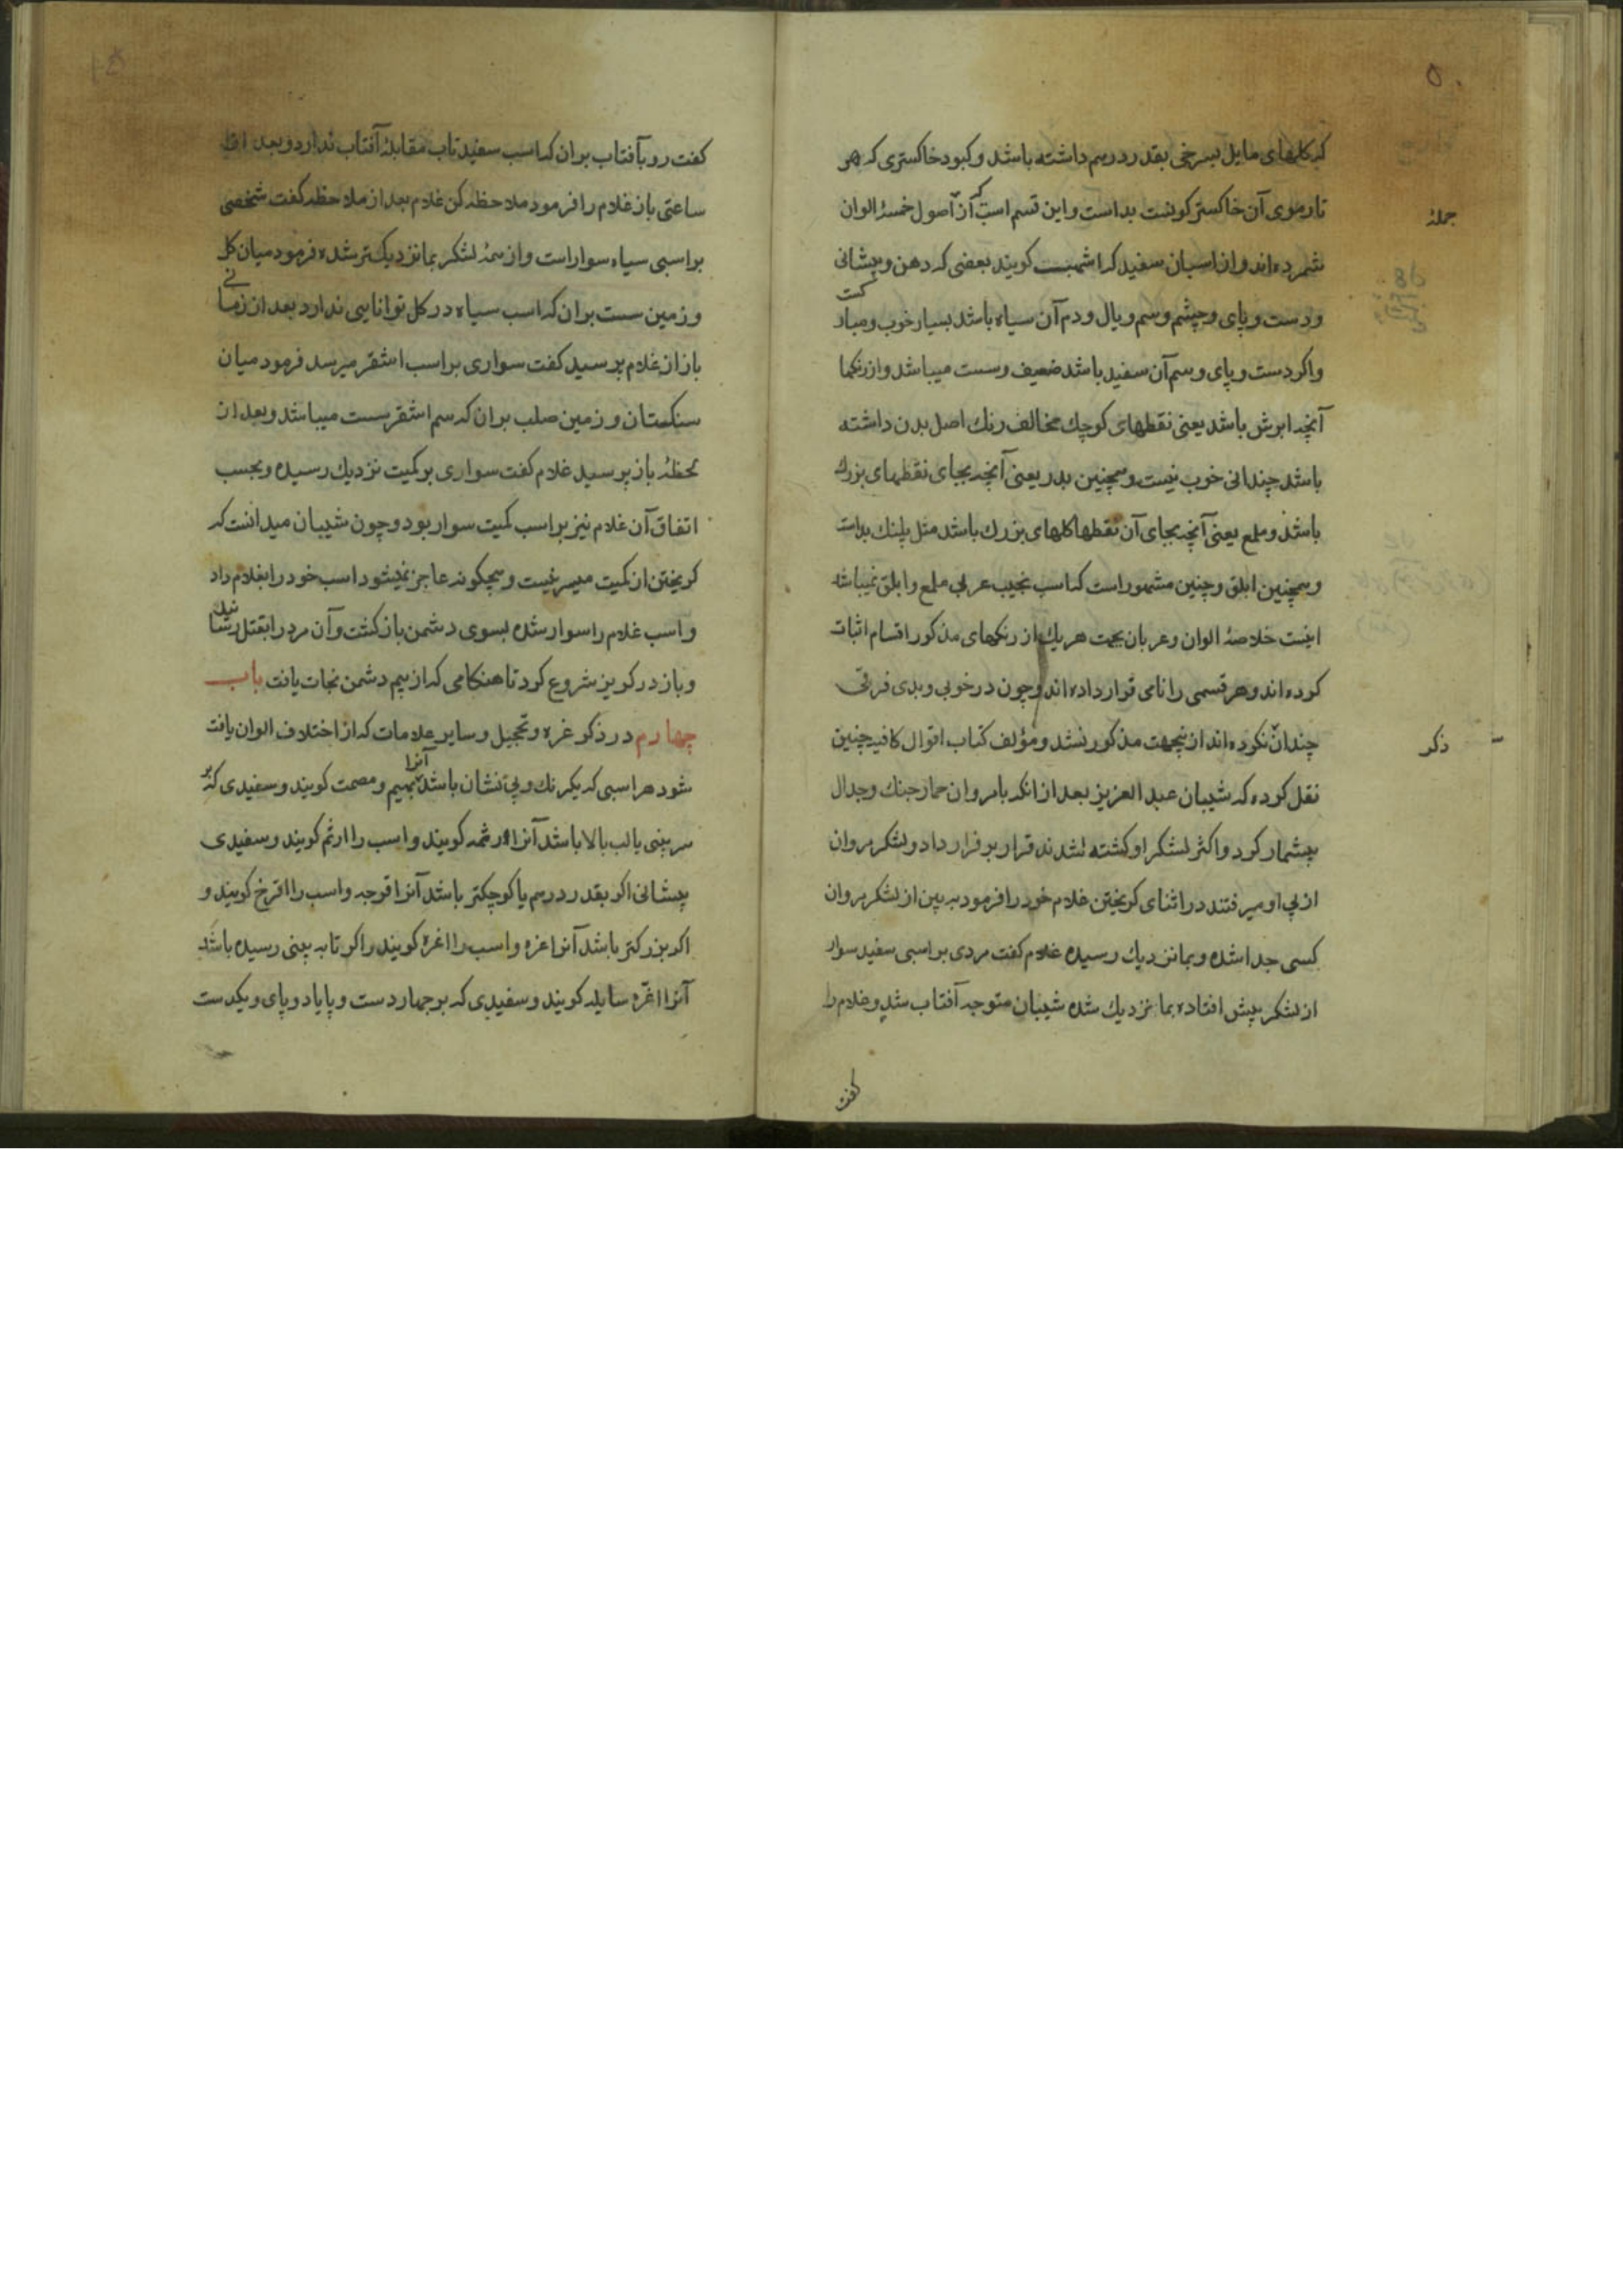 ۵
که کلهای مایل بسرخی بقدر درسم داشته باشد و کبود خاکستری که هر
تار موی آن خاکستر کونست بد است و این قسم است که از اصول خمسهٔ الوان
جملهٔ
شمرده اند و از اسبان سفید که اشهبست کویند بعضی که دهن و پیشانی
و دست و پای و چشم و سم و یال و دم آن سیاه باشد بسیار خوب و مبار کست
و اکر دست و پای و سم آن سفید باشد ضعیف و سست میباشد و از رنکها
آنچه ابرش باشد یعنی نقطهای کوچك مخالف رنك اصل بدن داشته
باشد چندانی خوب نیست و همچنین بدر یعنی آنچه بجای نقطهای بزرك
باشد و ملمع یعنی آنچه بجای آن نقطها کلهای بزرك باشد مثل پلنك بداست
و همچنین ابلق و چنین مشهور است که اسب نجیب عربی ملمع و ابلق نمیباشد
اینست خلاصهٔ الوان و عربان بجهت هر یك از رنکهای مذکور اقسام اثبات
کرده اند و هر قسمی را نامی قرار داده اند و چون در خوبی و بدی فرقی
چندان نکرده اند از نیجهت مذکور نشد و مؤلف کتاب اقوال کافیه چنین
ذکر
نقل کرده که شیبان عبد العزیز بعد از انکه با مروان حمار جنك و جدال
بیشمار کرد و اکثر لشکر او کشته شدند قرار بر فرار داد و لشکر مروان
از پی او میرفتند در اثنای کریختن غلام خود را فرمود به بین از لشکر مروان
کسی جدا شده و بما نزدیك رسیده غلام کفت مردی بر اسبی سفید سوار
از لشکر پیش افتاده بما نزدیك شده شیبان متوجه آفتاب شد و غلام را
کفت
کفت رو بآفتاب بران که اسب سفید تاب مقابلهٔ آفتاب ندارد و بعد از
ساعتی باز غلام را فرمود ملاحظه کن غلام بعد از ملاحظه کفت شخصی
بر اسبی سیاه سوار است و از همهٔ لشکر بما نزدیك تر شده فرمود میان کل
و زمین سست بران که اسب سیاه در کل توانایی ندارد بعد از زمانی
باز از غلام پرسید کفت سواری بر اسب اشقر میرسد فرمود میان
سنکستان و زمین صلب بران که سم اشقر سست میباشد و بعد از
لحظهٔ باز پرسید غلام کفت سواری بر کمیت نزدیك رسیده و بحسب
اتفاق آن غلام نیز بر اسب کمیت سوار بود و چون شیبان میدانست که
کریختن از کمیت میسر نیست و هیچکونه عاجز نمیشود اسب خود را بغلام داد
و اسب غلام را سوار شده بسوی دشمن باز کشت و آن مرد را بقتل رسانید
و باز در کریز شروع کرد تا هنکامی که از بیم دشمن نجات یافت باب
چهارم در ذکر غره و تحجیل و سایر علامات که از اختلاف الوان یافت
شود هر اسبی که یکرنك و بی نشان باشد آنرا بهیم و مصمت کویند و سفیدی که بر
سر بینی یا لب بالا باشد آنرا رثمه کویند و اسب را ارثم کویند و سفیدی
پیشانی اکر بقدر درسم یا کوچکتر باشد آنرا قرحه و اسب را اقرح کویند و
اکر بزرکتر باشد آنرا غره و اسب را اغره کویند و اکر تا به بینی رسیده باشد
آنرا اغرّه سایله کویند و سفیدی که بر چهار دست و پا یا دو پای و یکدست